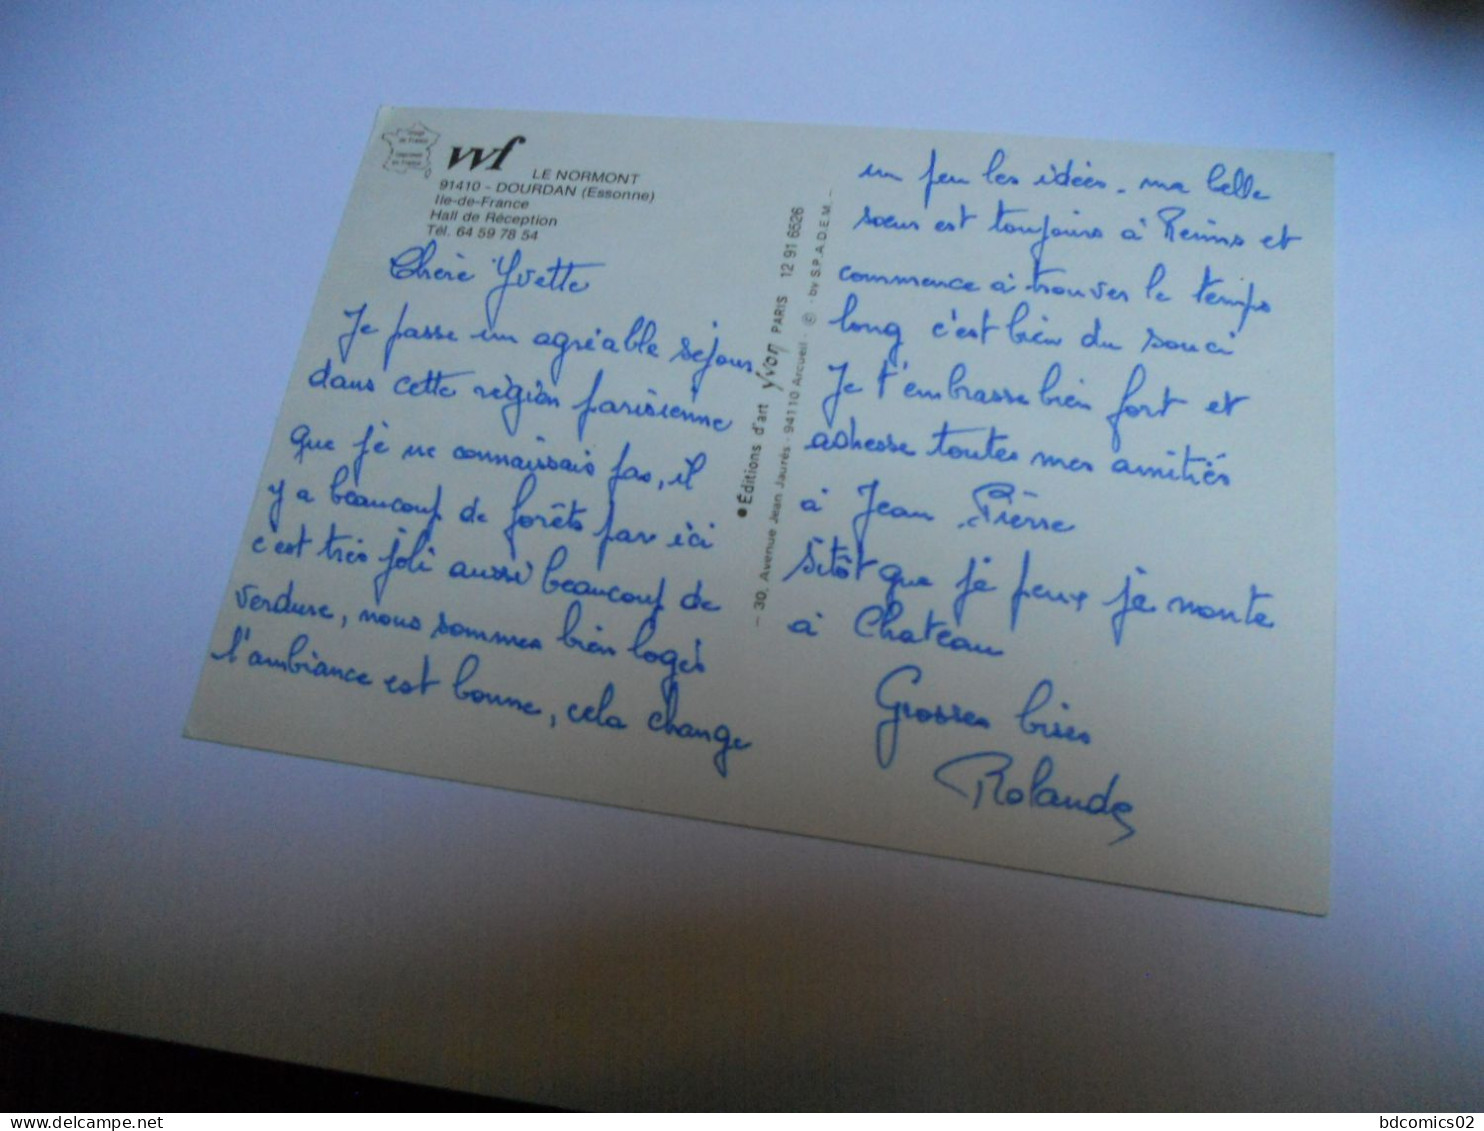 vvf
LE NORMONT
91410 - DOURDAN (Essonne)
Ile-de-France
Hall de Réception
Tél. 64 59 78 54
Chère Yvette
Je passe un agréable séjour
dans cette région parisienne
que je ne connaissais pas, il
y a beaucoup de forêts par ici
c'est très joli aussi beaucoup de
verdure, nous sommes bien logés
l'ambiance est bonne, cela change
● Éditions d'art yvon PARIS 12 91 6526
– 30, Avenue Jean Jaurès · 94110 Arcueil · © · by S.P.A.D.E.M. –
un peu les idées. ma belle
sœur est toujours à Reims et
commence à trouver le temps
long c'est bien du souci
Je t'embrasse bien fort et
adresse toutes mes amitiés
à Jean Pierre
Sitôt que je peux je monte
à Chateau
Grosses bises
Rolande
bdcomics02